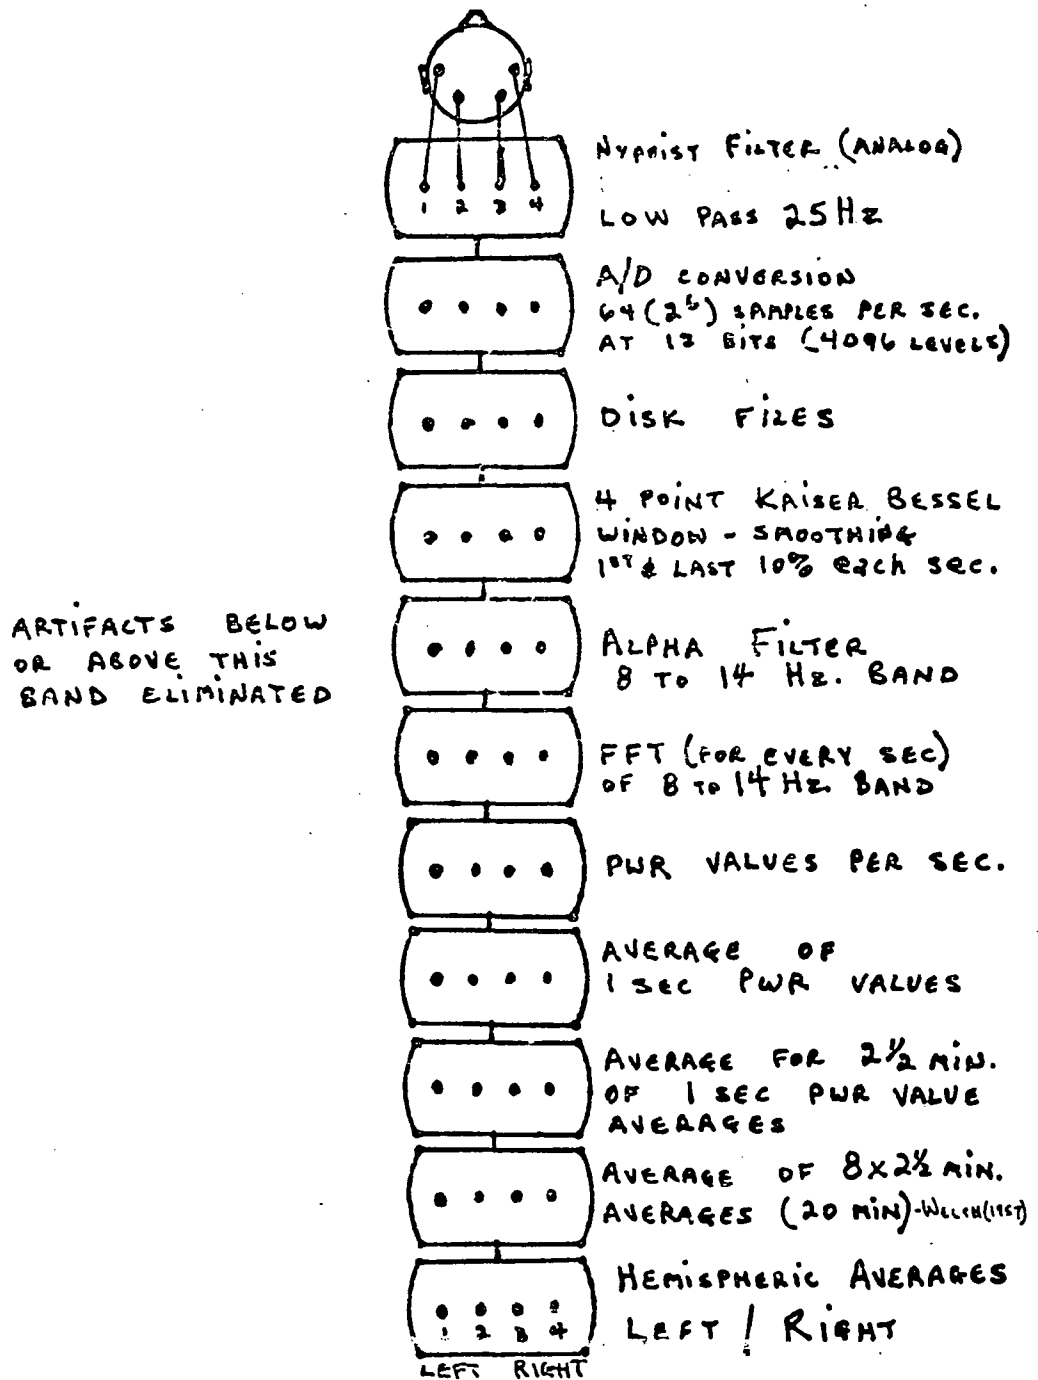 NYQUIST FILTER (ANALOG)
1 2 3 4
LOW PASS 25 Hz
A/D CONVERSION
64 (2⁶) SAMPLES PER SEC.
AT 12 BITS (4096 LEVELS)
DISK FILES
4 POINT KAISER BESSEL
WINDOW - SMOOTHING
1ST & LAST 10% each sec.
ARTIFACTS BELOW
OR ABOVE THIS
BAND ELIMINATED
ALPHA FILTER
8 TO 14 Hz. BAND
FFT (FOR EVERY SEC)
OF 8 TO 14 Hz. BAND
PWR VALUES PER SEC.
AVERAGE OF
1 SEC PWR VALUES
AVERAGE FOR 2½ MIN.
OF 1 SEC PWR VALUE
AVERAGES
AVERAGE OF 8 X 2½ MIN.
AVERAGES (20 MIN) - WELCH
HEMISPHERIC AVERAGES
LEFT / RIGHT
1 2 3 4
LEFT RIGHT